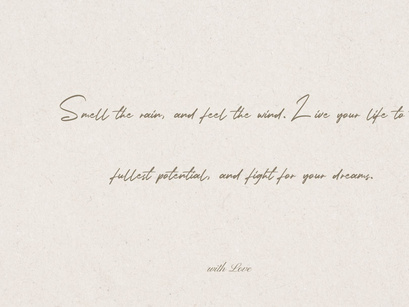 Smell the rain, and feel the wind. Live your life to
fullest potential, and fight for your dreams.
with Love